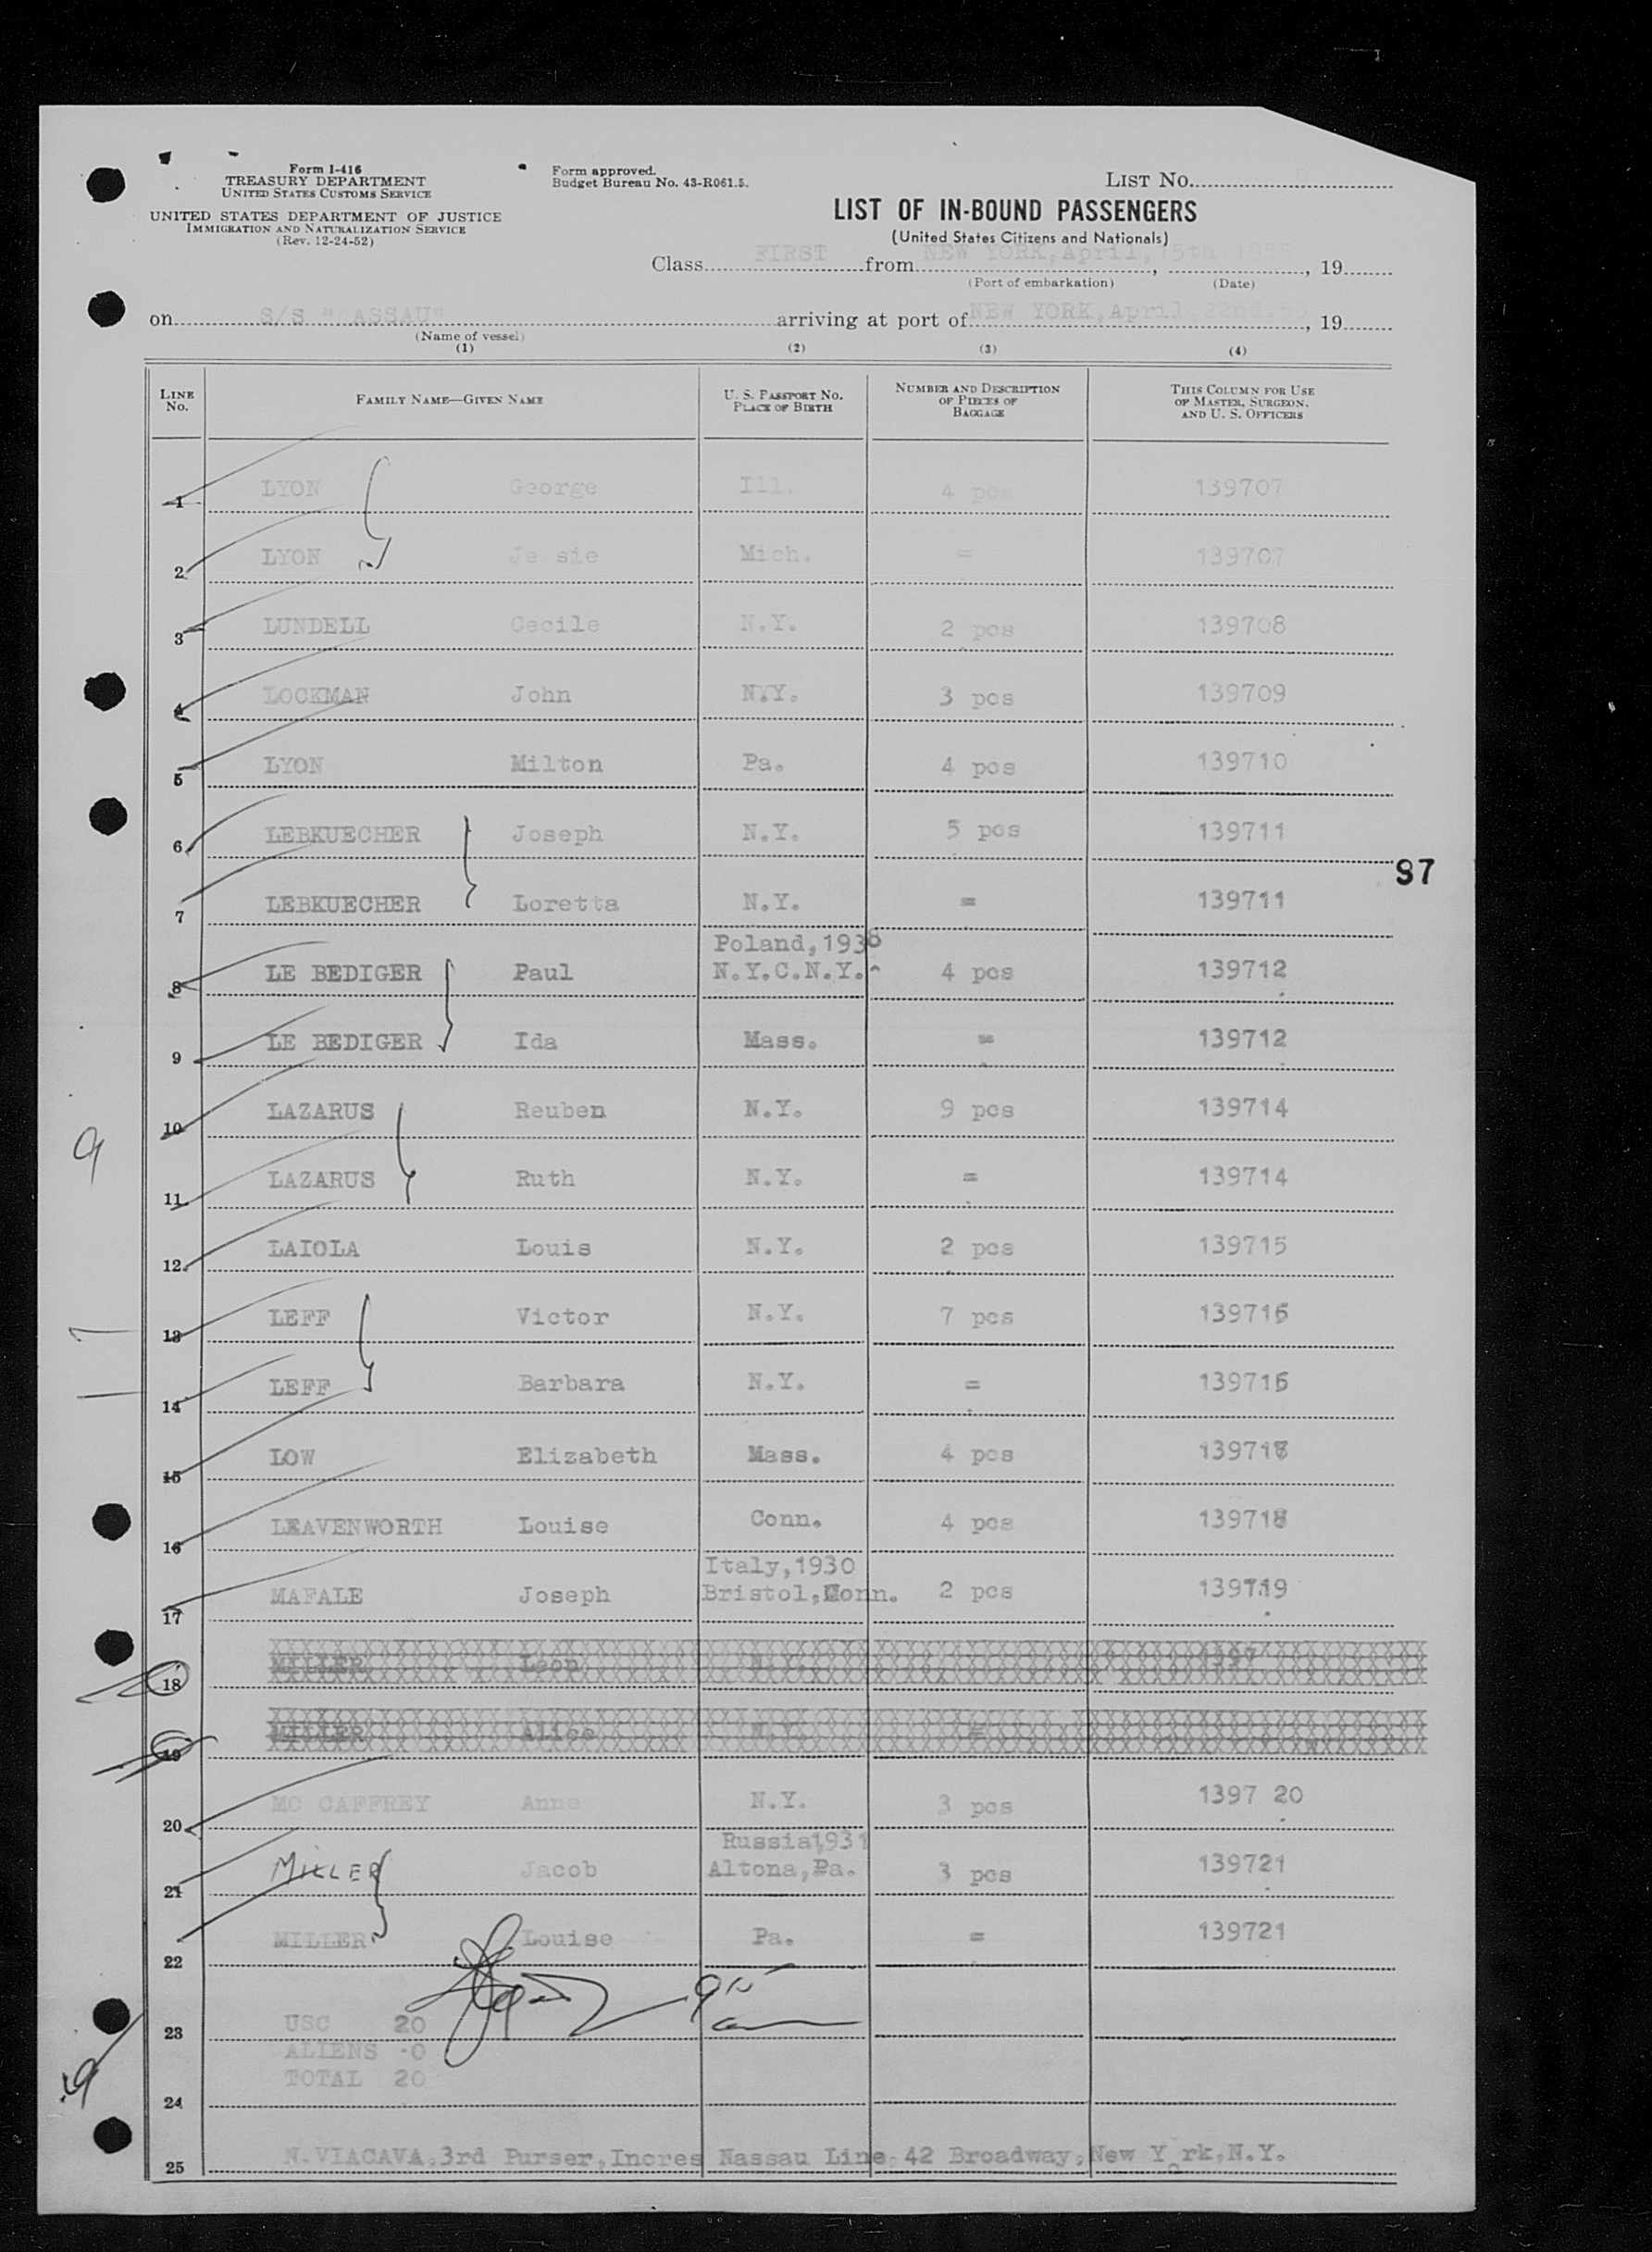 Form I-416
TREASURY DEPARTMENT
UNITED STATES CUSTOMS SERVICE
UNITED STATES DEPARTMENT OF JUSTICE
IMMIGRATION AND NATURALIZATION SERVICE
(Rev. 12-24-52)
Form approved.
Budget Bureau No. 43-R061.5.
LIST NO.
LIST OF IN-BOUND PASSENGERS
(United States Citizens and Nationals)
Class FIRST from NEW YORK, April, 15th 1955, 19
(Port of embarkation) (Date)
on S/S "NASSAU" arriving at port of NEW YORK, April, 22nd, 19
(Name of vessel)
(1) (2) (3) (4)
LINE No. FAMILY NAME—GIVEN NAME U. S. PASSPORT NO. PLACE OF BIRTH NUMBER AND DESCRIPTION OF PIECES OF BAGGAGE THIS COLUMN FOR USE OF MASTER, SURGEON, AND U. S. OFFICERS
1 LYON George Ill. 4 pcs 139707
2 LYON Je sie Mich. = 139707
3 LUNDELL Cecile N.Y. 2 pcs 139708
4 LOCKMAN John N.Y. 3 pcs 139709
5 LYON Milton Pa. 4 pcs 139710
6 LEBKUECHER Joseph N.Y. 5 pcs 139711
97
7 LEBKUECHER Loretta N.Y. = 139711
Poland,1938
8 LE BEDIGER Paul N.Y.C.N.Y. 4 pcs 139712
9 LE BEDIGER Ida Mass. = 139712
10 LAZARUS Reuben N.Y. 9 pcs 139714
9
11 LAZARUS Ruth N.Y. = 139714
12 LAIOLA Louis N.Y. 2 pcs 139715
13 LEFF Victor N.Y. 7 pcs 139716
14 LEFF Barbara N.Y. = 139716
15 LOW Elizabeth Mass. 4 pcs 139718
16 LEAVENWORTH Louise Conn. 4 pcs 139718
Italy,1930
17 MAFALE Joseph Bristol,Conn. 2 pcs 139719
18 MILLER Leon N.Y. 1397
19 MILLER Alice N.Y. =
20 MC CAFFREY Anne N.Y. 3 pcs 1397 20
Russia1931
21 MILLER Jacob Altona,Pa. 3 pcs 139721
22 MILLER Louise Pa. = 139721
23 USC 20
ALIENS -0
TOTAL 20
24
25 N.VIACAVA,3rd Purser,Incres Nassau Line, 42 Broadway,New Y rk,N.Y.